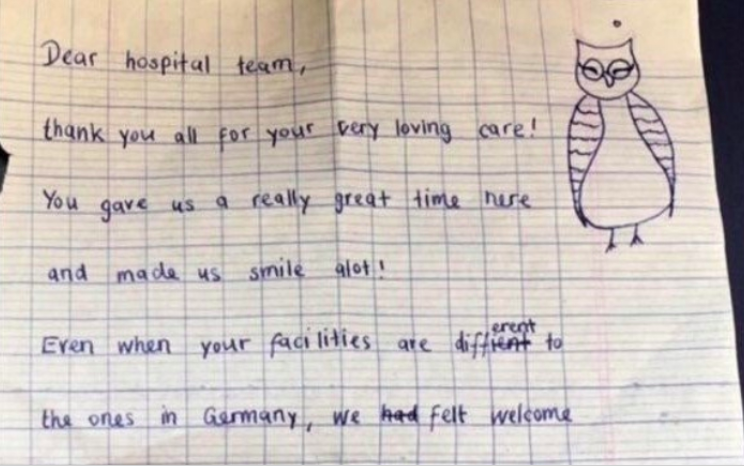 Dear hospital team,
thank you all for your very loving care!
You gave us a really great time here
and made us smile alot!
Even when your facilities are different to
the ones in Germany, we had felt welcome